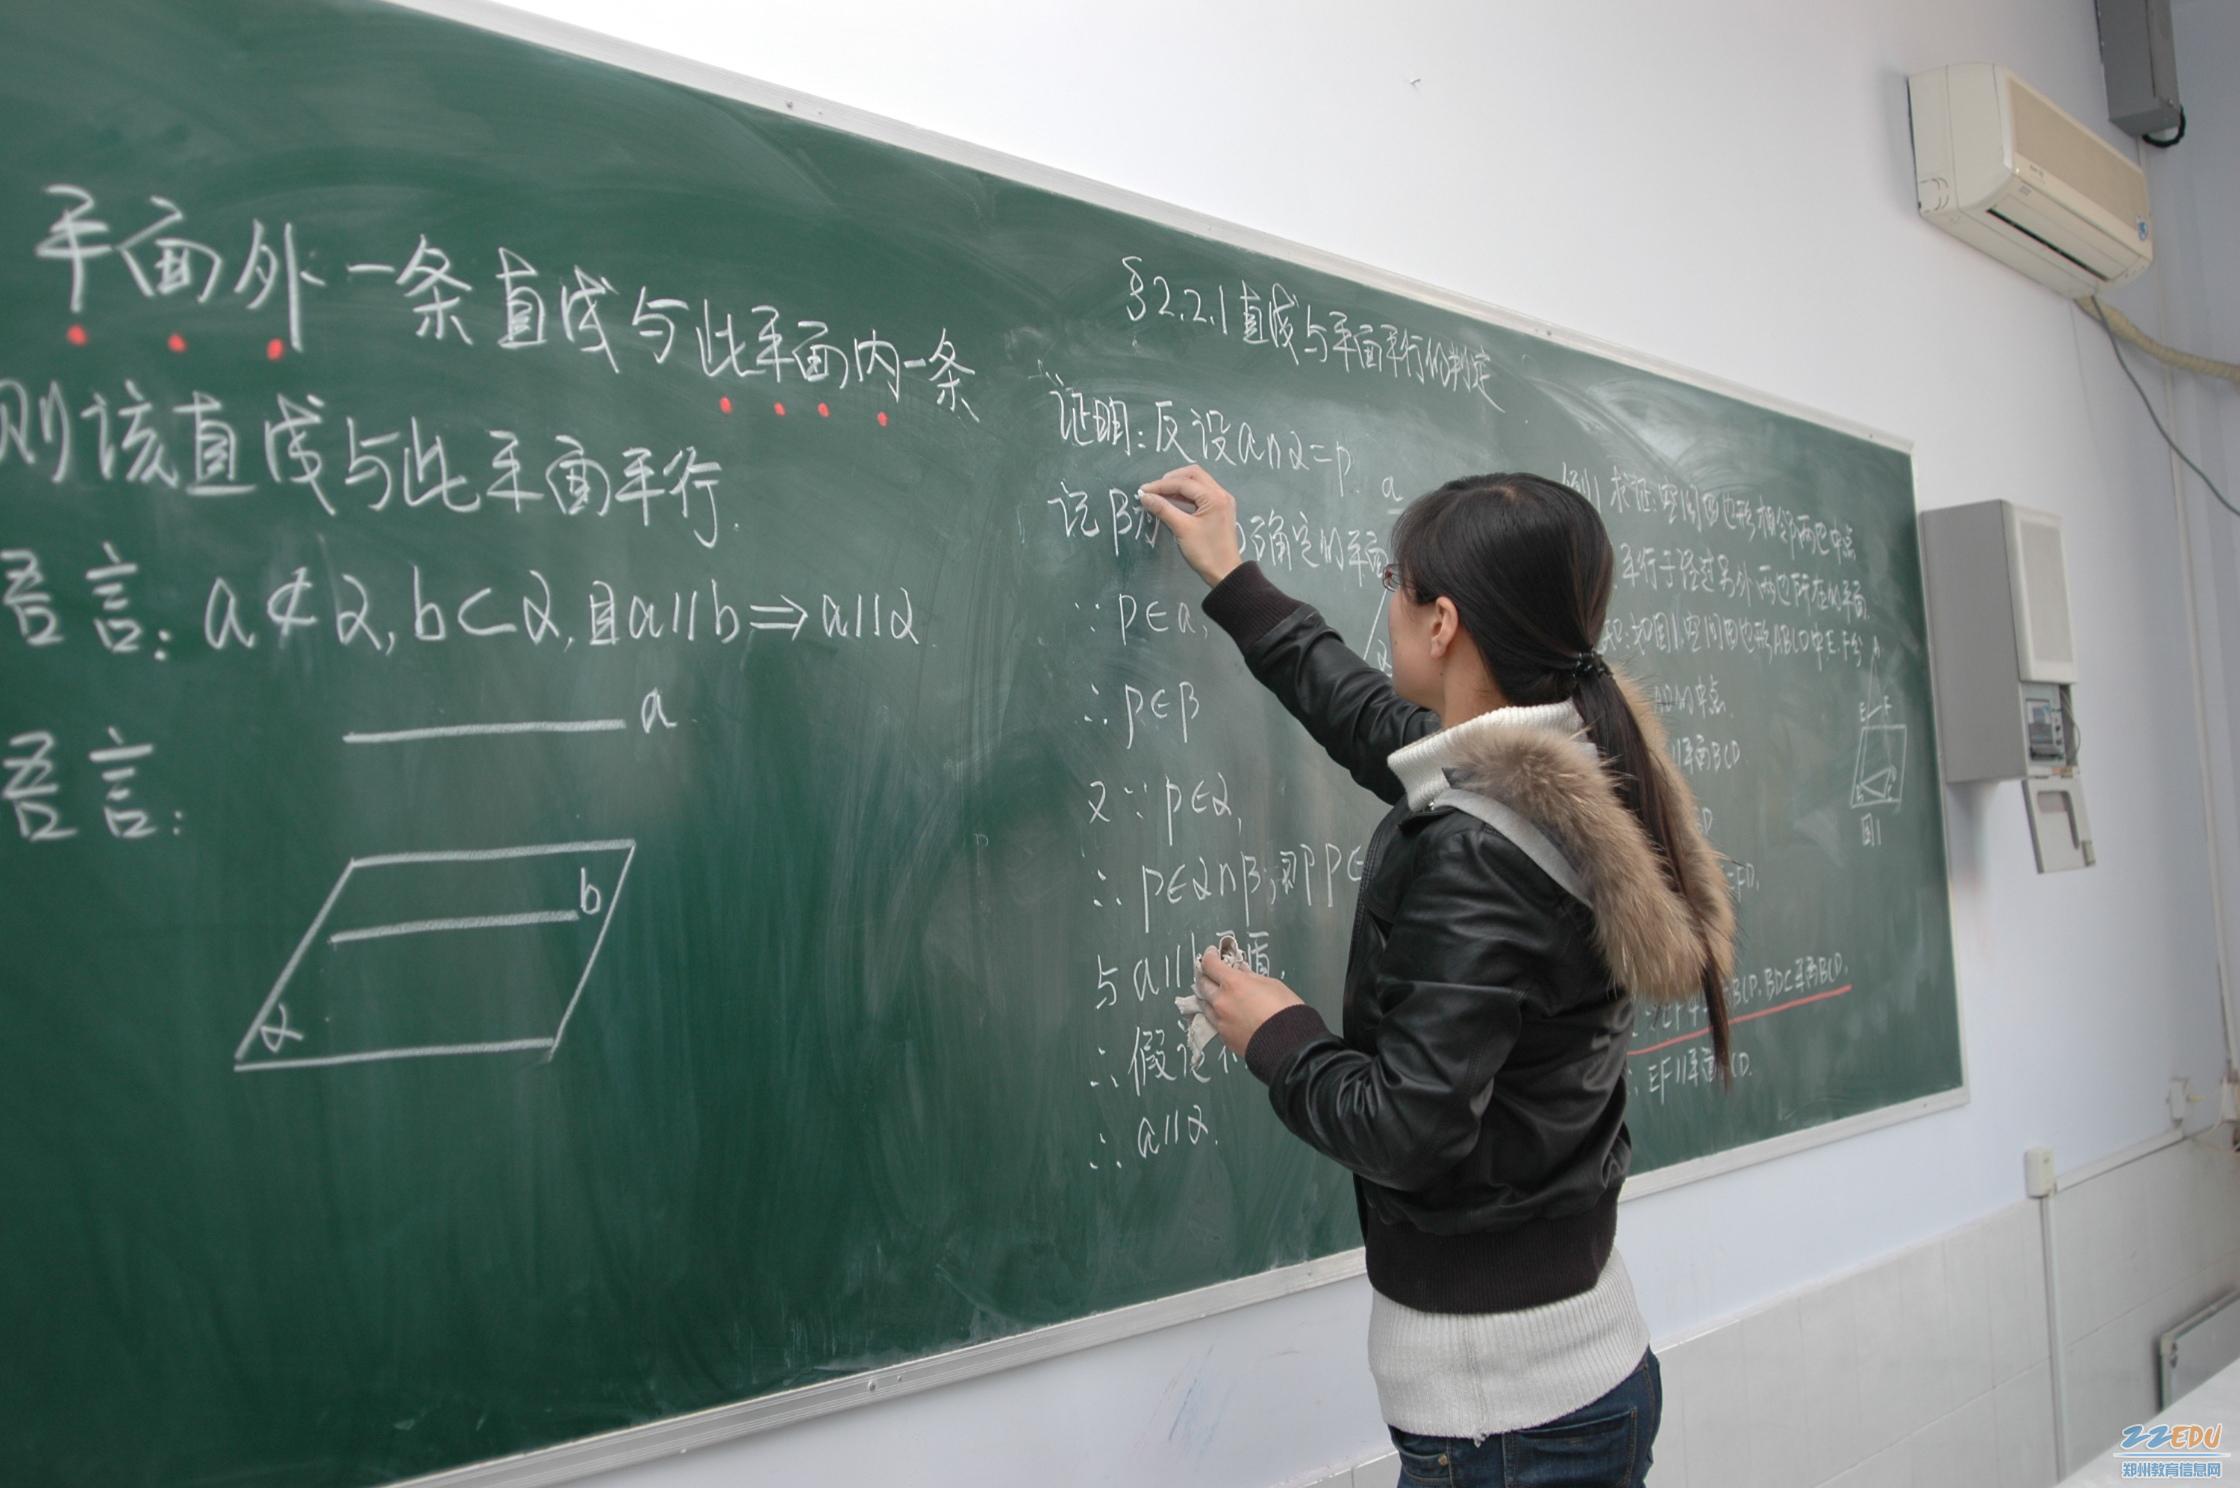 平面外一条直线与此平面内一条
则该直线与此平面平行.
语言: a⊄α, b⊂α, 且a//b⇒a//α
语言:
a
b
α
§2.2.1直线与平面平行的判定
证明: 反设a∩α=p.
记β为 确定的平面
∵p∈a,
∴p∈β
又∵p∈α,
∴p∈α∩β, 即p∈
与a//b 盾.
∴假设不
∴a//α.
a
α
例1 求证:空间四边形相邻两边中点
平行于经过另外两边所在的平面.
知:如图1,空间四边形ABCD中E.F分
AD的中点.
//平面BCD
D
FD.
BCD, BD⊂平面BCD.
∴EF//平面BCD.
A
E F
图1
ZZEDU
郑州教育信息网